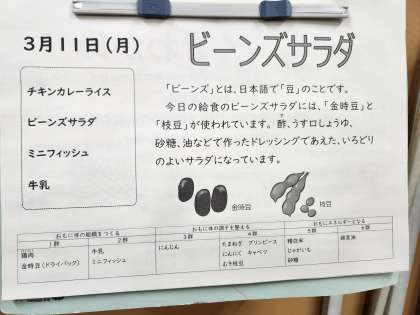 3月11日(月)
ビーンズサラダ
チキンカレーライス
ビーンズサラダ
ミニフィッシュ
牛乳
「ビーンズ」とは、日本語で「豆」のことです。
今日の給食のビーンズサラダには、「金時豆」と
「枝豆」が使われています。酢、うす口しょうゆ、
砂糖、油などで作ったドレッシングであえた、いろどり
のよいサラダになっています。
金時豆
枝豆
おもに体の組織をつくる おもに体の調子を整える おもにエネルギーとなる
1群 2群 3群 4群 5群 6群
鶏肉 牛乳 にんじん たまねぎ グリンピース 精白米
金時豆(ドライパック) ミニフィッシュ にんにく キャベツ じゃがいも
むき枝豆 砂糖